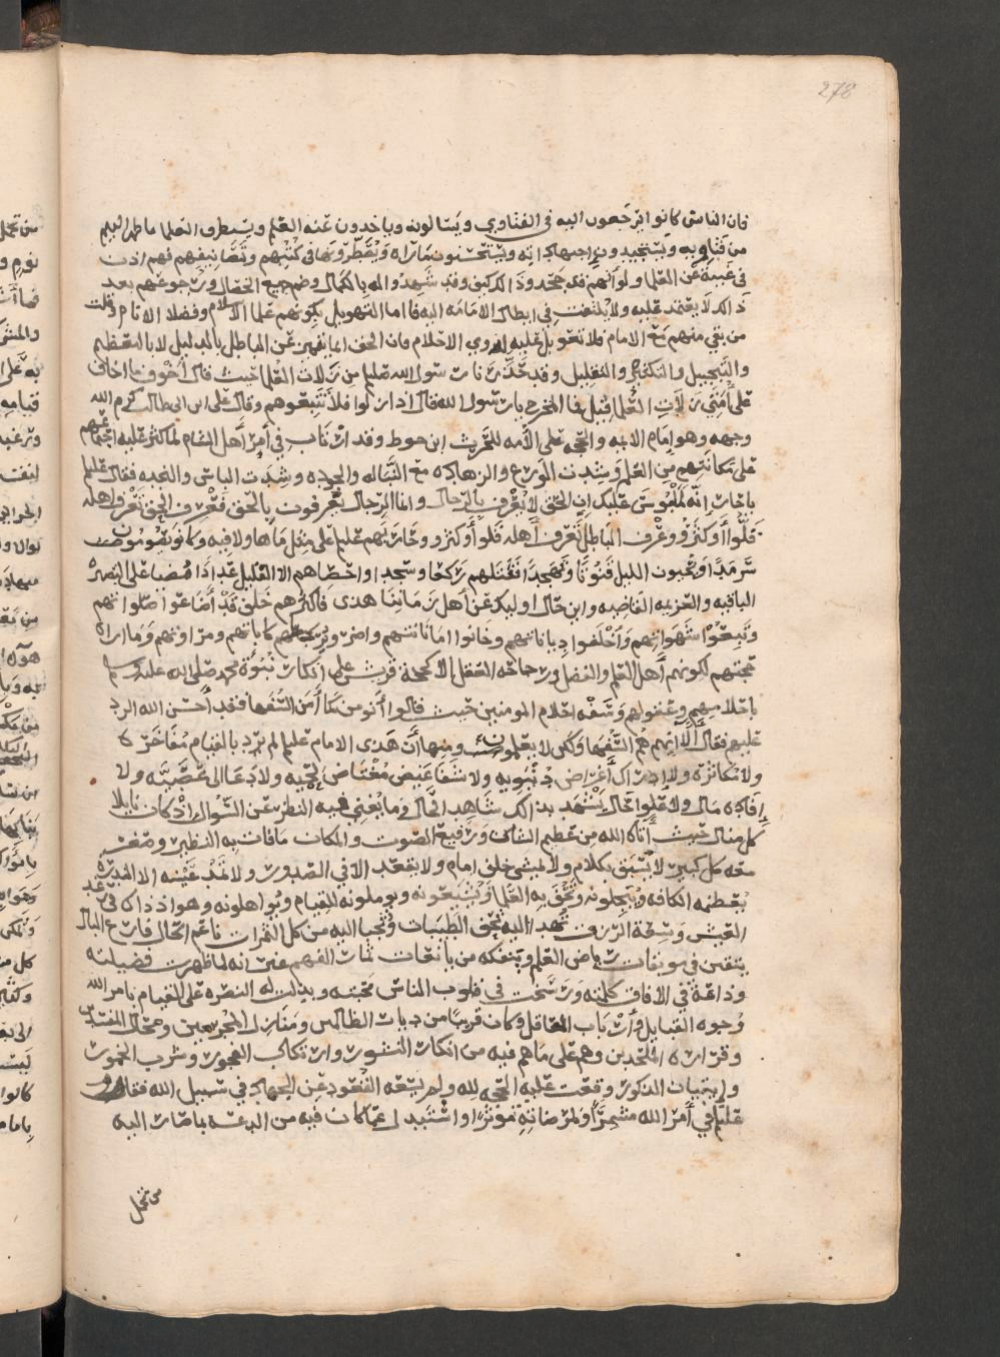 278
فان الناس كانوا يرجعون اليه في الفتاوي ويسالونه وياخدون عنه العلم ويستطرف العلما ما ظهر اليهم
من فتاويه ويستجيدون اجتهاداته ويستحسنون ماراه في كتبهم وتصانيفهم فهم اذن
في غيبة عن العلما ولو انهم قد جحدوا ذالك كيف وقد شهدوا له بالكمال وجميع الخصال ورجوعهم بعد
ذالك لا يعتمد عليه ولا يلتفت في ابطال الامامه اليه فاما التهويل بكونهم علما الاسلام وفضلا الانام وقلت
من بقي منهم مع الامام فلا تعويل عليه لدوي الاحلام فان الحق انما يتميز عن الباطل بالدليل لا بالتعظيم
والتبجيل والتكثير والتقليل وقد حذرنا رسول الله صلعم من زلات العلما حيث قال اخوف ما اخاف
على امتي زلات العلما قيل فما المخرج يا رسول الله قال اذا زلوا فلا تتبعوهم وقال علي ابن ابي طالب كرم الله
وجهه وهو امام الايمه والحجه على الامه للحرث ابن حوط وقد ارتاب في امر اهل الشام لما كثر عليه اجتماعهم
على مكانتهم من العلم وشدت الورع والزهاده مع النباله والجوده وشدت الباس والنجده فقال عليلم
يا حار انه لملبوس عليك ان الحق لا يعرف بالرجال وانما الرجال يعرفون بالحق فاعرف الحق تعرف اهله
قلوا او كثروا واعرف الباطل تعرف اهله قلوا او كثروا وحاربهم عليلم على مثل ما هاولا فيه وكانوا يصومون
سرمدا ويحيون الليل قنوتا وتهجدا فقتلهم ركعا وسجدا واحصاهم الا القليل عددا فمضا على البصيره
الباقيه والعزيمه الماضيه واين حال اوليك عن اهل زماننا هذي فاكثرهم خلف قد اضاعوا صلواتهم
وتبعوا شهواتهم واخلفوا دياناتهم وخانوا اماناتهم
حجتهم لكونهم اهل العلم والفضل ورجاحة العقل الا كحجة قريش على انكار نبوة محمد صلى الله عليه وسلم
باحلامهم وعقولهم وسفه احلام المومنين حيث قالوا انومن كما امن السفها فقد احسن الله الرد
عليهم فقال الا انهم هم السفها ولكن لا يعلمون ومنها ان هذي الامام عليلم لم يرد بالقيام مفاخره
ولا مكاثره ولا ادراك اغراض دنيويه ولا شفا غيض مغتاض لحميه ولا دعا الى عصبيه ولا
افادة مال ولا علوا حال يشهد بذالك شاهد الحال وما يغني فيه النظر عن السوال اذ كان نايلا
كل منال حيث اتاه الله من عظيم الشان ورفيع الصوت والمكان ما فات به النظير وصغر
معه كل كبير لا يسبق بكلام ولا يمشي خلف امام ولا يقعد الا في الصدور ولا تمد عينه الا
يعظمه الكافه ويبجلونه وتحف به العلما ويشيعونه ويوملونه للقيام ويواهلونه وهو اذ ذاك في رغد
العيش وسعة الرزق تهدا اليه تحف الطيبات وتجبا اليه من كل الثمرات ناعم الحال فارغ البال
يتقن في مونقات رياض العلم ويتفكه من يانعات ثمار الفهم غير انه لما ظهرت فضيلته
وذاعة في الافاق كلمته ورسخت في قلوب الناس محبته وبذلت له النصره على القيام بامر الله
وجوه القبايل وارباب المعاقل وكان قريبا من ديار الظالمين ومنازل المجرمين ومحال المفسدين
وقرارة الملحدين وهم على ما هم فيه من انكار النشور وارتكاب الفجور وشرب الخمور
واتيان الذكور وقعت عليه الحجه لله ولم يسعه القعود عن الجهاد في سبيل الله فقام
عليلم في امر الله مشمرا ولمرضاته موثرا واستبدل عما كان فيه من الدعة بما صار اليه
من تحمل